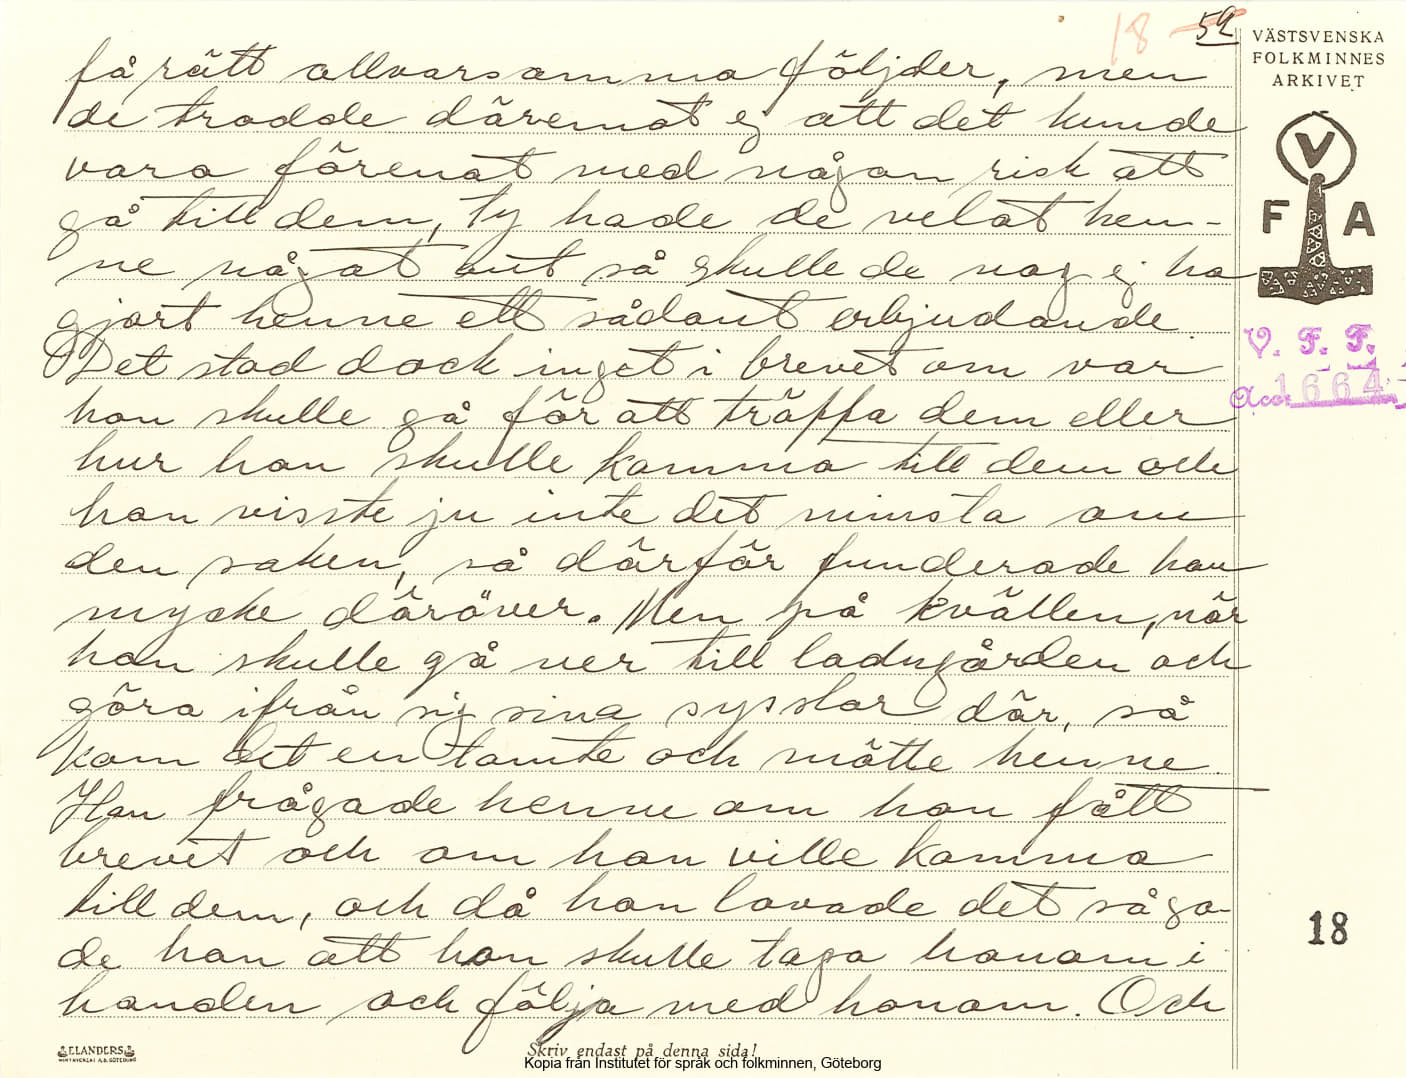 18 59
VÄSTSVENSKA
FOLKMINNES
ARKIVET
V
F A
V. F. F.
Acc. 1664
få rätt allvarsamma följder, men
de trodde däremot ej att det kunde
vara förenat med någon risk att
gå till dem, ty hade de velat hen-
ne något ont så skulle de nog ej ha
gjort henne ett sådant erbjudande
Det stod dock inget i brevet om var
hon skulle gå för att träffa dem eller
hur hon skulle komma till dem och
hon visste ju inte det minsta om
den saken, så därför funderade hon
mycke däröver. Men på kvällen, när
hon skulle gå ner till ladugården och
göra ifrån sig sina sysslor där, så
kom det en tomte och mötte henne.
Han frågade henne om hon fått
brevet och om hon ville komma
till dem, och då hon lovade det såga-
de han att hon skulle taga honom i
handen och följa med honom. Och
18
ELANDERS
Skriv endast på denna sida!
Kopia från Institutet för språk och folkminnen, Göteborg